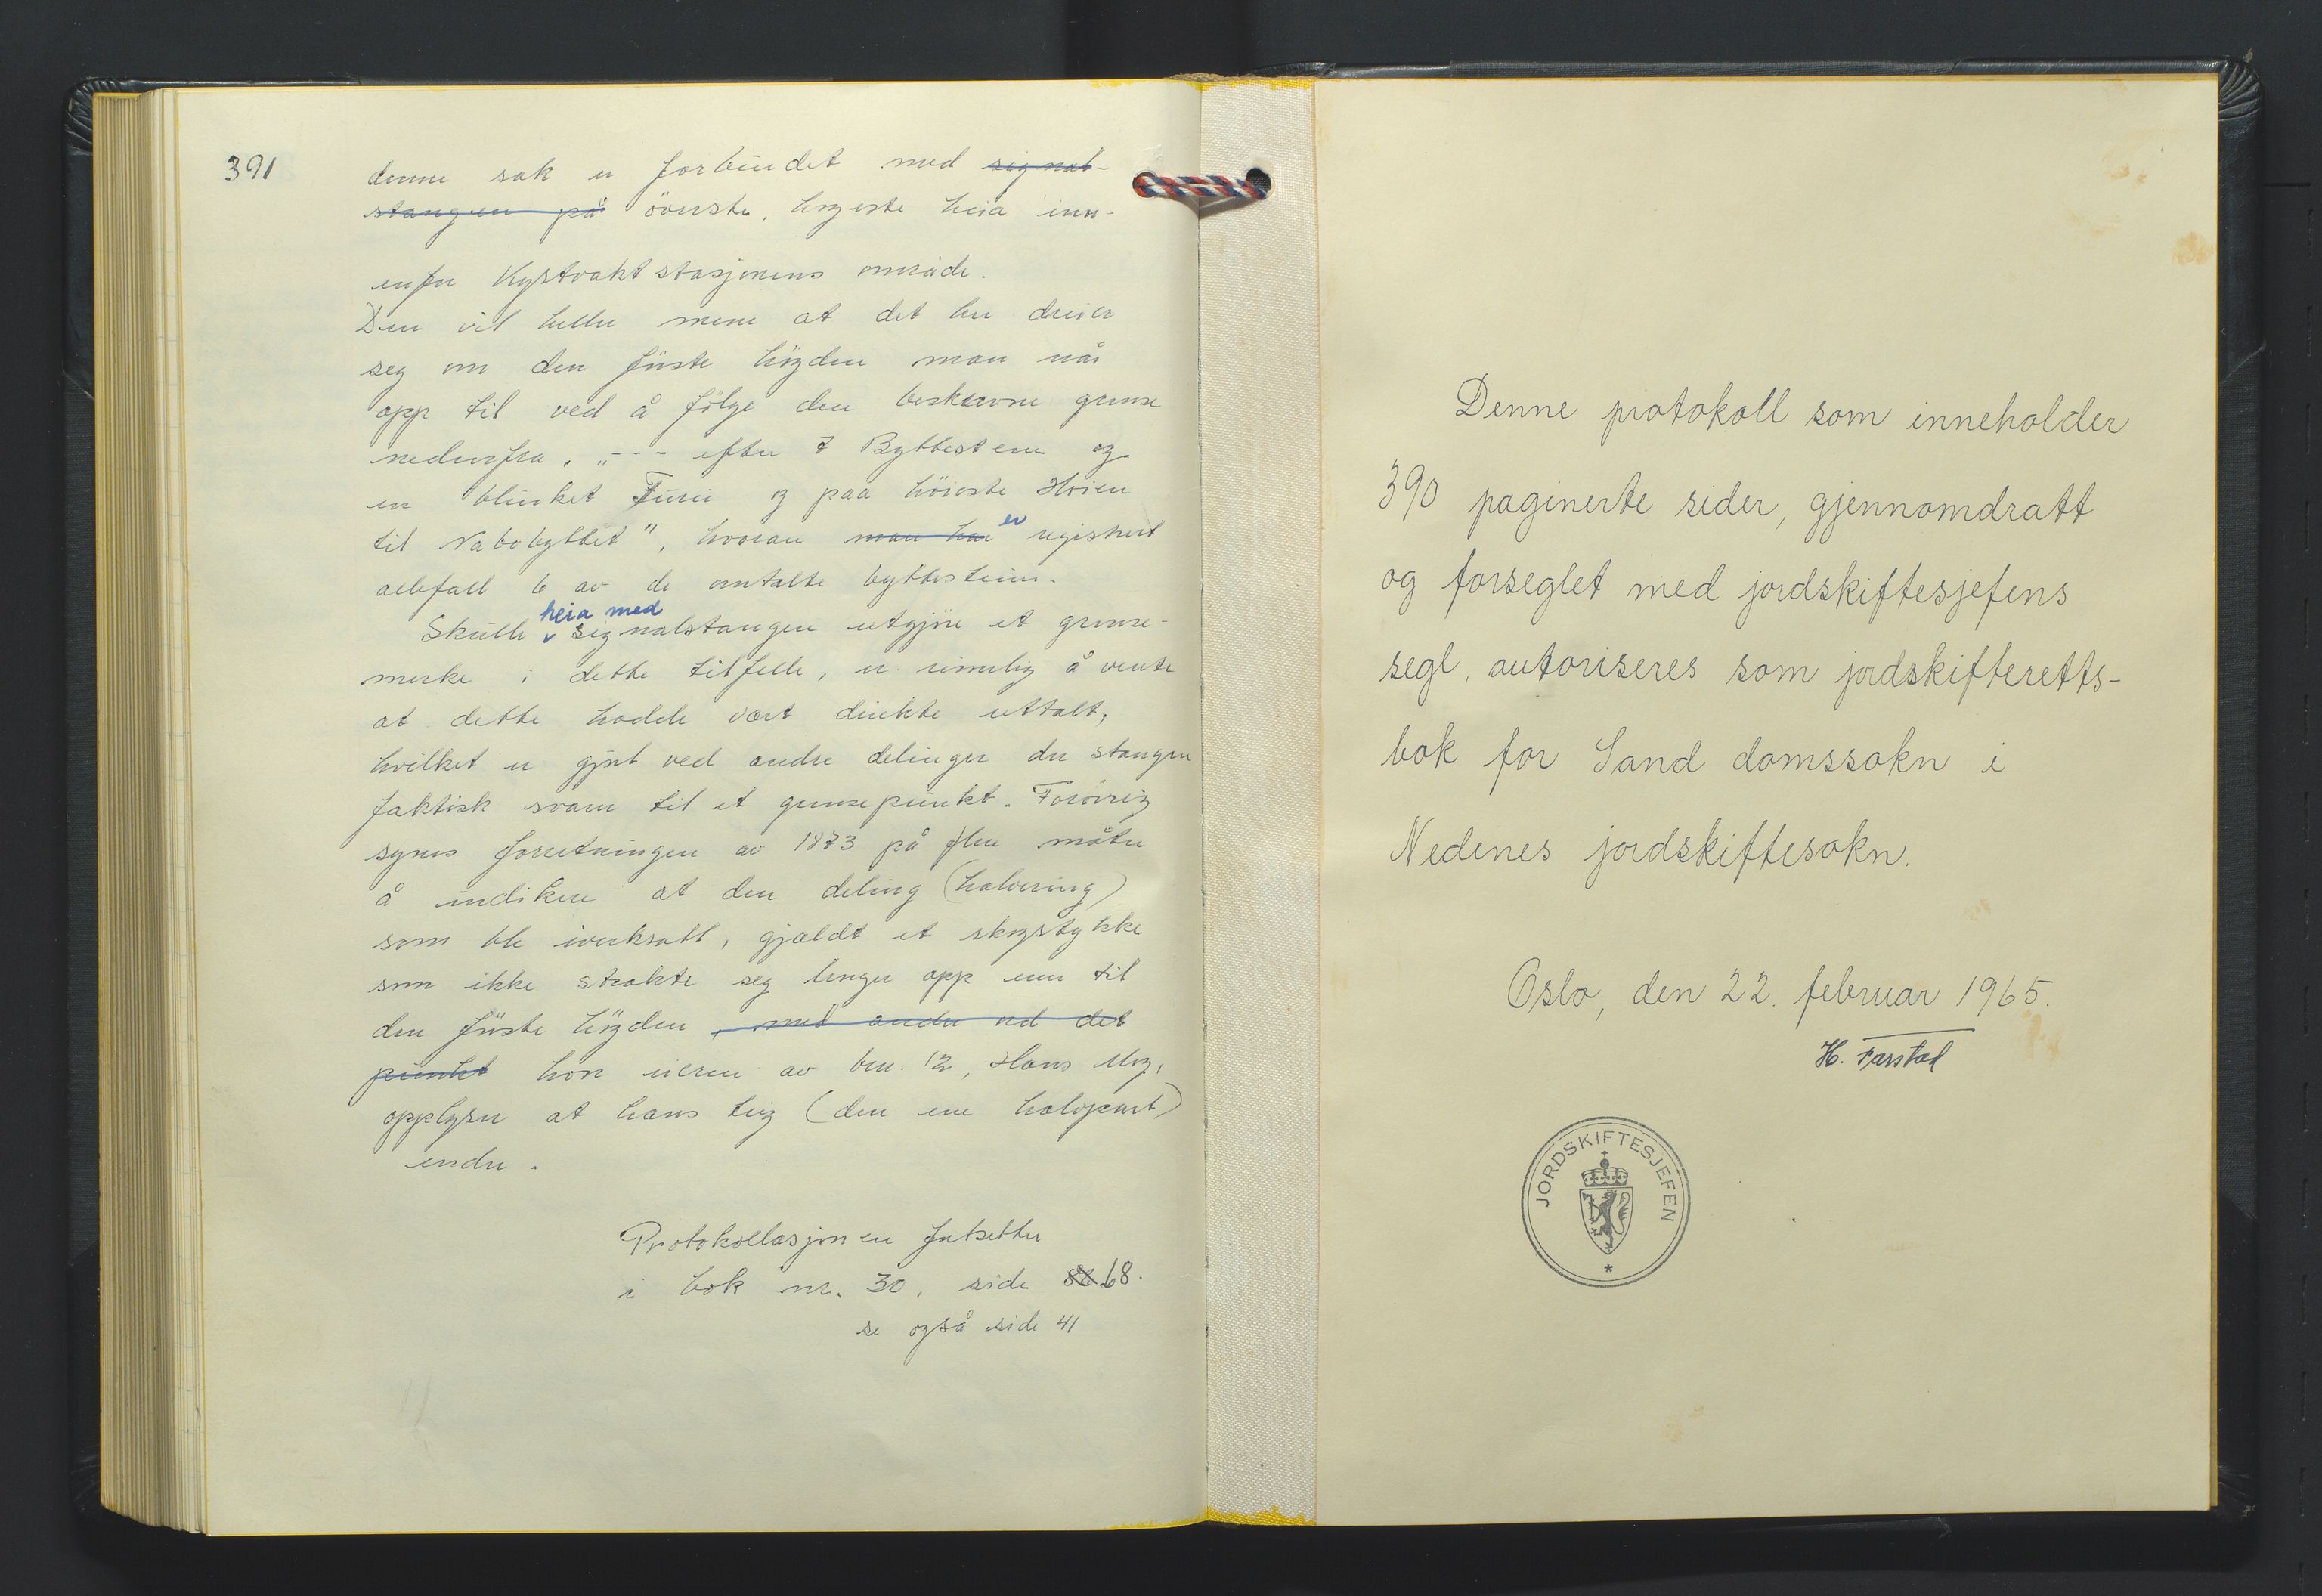 391
denne sak er forbundet med signal-
stangen på øverste, høgeste heia inn-
enfor Kystvaktstasjonens område.
Den vil heller mene at det her dreier
seg om den första högden man når
opp til ved å følge den beskrevne grense
nedenfra, „--- efter 7 Byttesteene og
en blinket Furu og paa höieste Heien
til Nabobyttet", hvorav man har er registrert
allefall 6 av de omtalte byttesteiner.
heia med
Skulle signalstangen utgjöre et grense-
merke i dette tilfelle, er rimelig å vente
at dette hadde vært direkte uttalt,
hvilket er gjort ved andre delinger der stangen
faktisk svarer til et grensepunkt. Forövrig
synes forretningen av 1873 på flere måter
å indikere at den deling (halvering)
som ble iverksatt, gjaldt et skogstykke
som ikke strakte seg lenger opp enn til
den förste högden, med andre ord det
punkt hvor eieren av bnr. 12, Hans
opplyser at hans teig (den ene halvpart)
ender.
Protokollasjonen fortsetter
i bok nr. 30, side 68.
se også side 41
Denne protokoll som inneholder
390 paginerte sider, gjennomdratt
og forseglet med jordskiftesjefens
segl, autoriseres som jordskifteretts-
bok for Sand domssokn i
Nedenes jordskiftesokn.
Oslo, den 22. februar 1965.
H. Farstad
JORDSKIFTESJEFEN
*